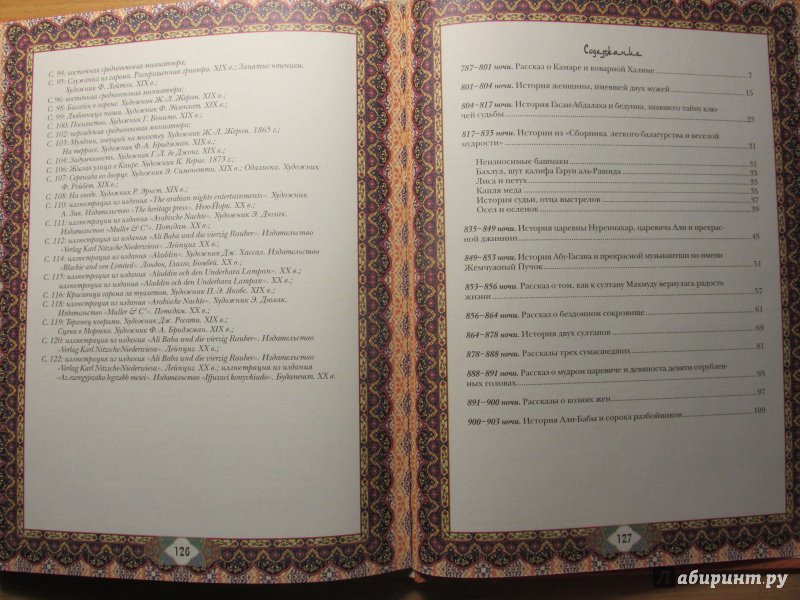 С. 94: восточная средневековая миниатюра;
С. 95: Служанка из гарема. Раскрашенная гравюра. XIX в.; Занятие чтением.
Художник Ф. Лейтон. XIX в.;
С. 96: восточная средневековая миниатюра;
С. 98: Бассейн в гареме. Художник Ж. Л. Жером. XIX в.;
С. 99: Любовница паши. Художник Ф. Эйзенхат. XIX в.;
С. 100: Посольство. Художник Г. Бонито. XIX в.;
С. 102: персидская средневековая миниатюра;
С. 103: Муэдзин, зовущий на молитву. Художник Ж. Л. Жером. 1865 г.;
На террасе. Художник Ф.-А. Бриджман. XIX в.;
С. 104: Задумчивость. Художник Г.-Л. де Джонг. XIX в.;
С. 106: Жилая улица в Каире. Художник К. Верне. 1873 г.;
С. 107: Серенада во дворце. Художник Э. Симонетти. XIX в.; Одалиска. Художник
Ф. Ройбет. XIX в.;
С. 108: На входе. Художник Р. Эрнст. XIX в.;
С. 110: иллюстрация из издания «The arabian nights entertainements». Художник
А. Лик. Издательство «The heritage press». Нью-Йорк. XX в.;
С. 111: иллюстрации из издания «Arabische Nachte». Художник Э. Дюлак.
Издательство «Muller & C°». Потсдам. XX в.;
С. 112: иллюстрация из издания «Ali Baba und die vierzig Rauber». Издательство
«Verlag Karl Nitzsche-Niederwiesa». Лейпциг. XX в.;
С. 114: иллюстрация из издания «Aladdin». Художник Дж. Хассал. Издательство
«Blackie and son Limited». Лондон, Глазго, Бомбей. XX в.;
С. 115: иллюстрации из издания «Aladdin och den Underbara Lampan». XX в.;
иллюстрация из издания «Aladdin och den Underbara Lampan». XX в.;
С. 116: Красавица гарема за туалетом. Художник П. Э. Якобс. XIX в.;
С. 118: иллюстрация из издания «Arabische Nachte». Художник Э. Дюлак.
Издательство «Muller & C°». Потсдам. XX в.;
С. 119: Торговец коврами. Художник Дж. Росати. XIX в.;
Сцена в Марокко. Художник Ф.-А. Бриджман. XIX в.;
С. 120: иллюстрация из издания «Ali Baba und die vierzig Rauber». Издательство
«Verlag Karl Nitzsche-Niederwiesa». Лейпциг. XX в.;
С. 122: иллюстрация из издания «Ali Baba und die vierzig Rauber». Издательство
«Verlag Karl Nitzsche-Niederwiesa». Лейпциг. XX в.; иллюстрация из издания
«Az ezeregyejszaka legszebb mesei». Издательство «Ifjusaci konyvkiado». Будапешт. XX в.
126
Содержание
787–801 ночи. Рассказ о Камаре и коварной Халиме 7
801–804 ночи. История женщины, имевшей двух мужей 15
804–817 ночи. История Гасан-Абдалаха и бедуина, знавшего тайну клю-
чей судьбы 23
817–835 ночи. Истории из «Сборника легкого балагурства и веселой
мудрости» 31
Неизносимые башмаки 31
Бахлул, шут калифа Гарун аль-Рашида 33
Лиса и петух 33
Капля меда 35
История судьи, отца выстрелов 37
Осел и осленок 39
835–849 ночи. История царевны Нуреннахар, царевича Али и прекрас-
ной джиннии 41
849–853 ночи. История Абу-Гасана и прекрасной музыкантши по имени
Жемчужный Пучок
853–856 ночи. Рассказ о том, как к султану Махмуду вернулась радость
жизни 57
856–864 ночи. Рассказ о бездонном сокровище 61
864–878 ночи. История двух султанов 69
878–888 ночи. Рассказы трех сумасшедших 81
888–891 ночи. Рассказ о мудром царевиче и девяноста девяти отрублен-
ных головах 93
891–900 ночи. Рассказы о кознях жен 97
900–903 ночи. История Али-Бабы и сорока разбойников 109
127
Лабиринт.ру